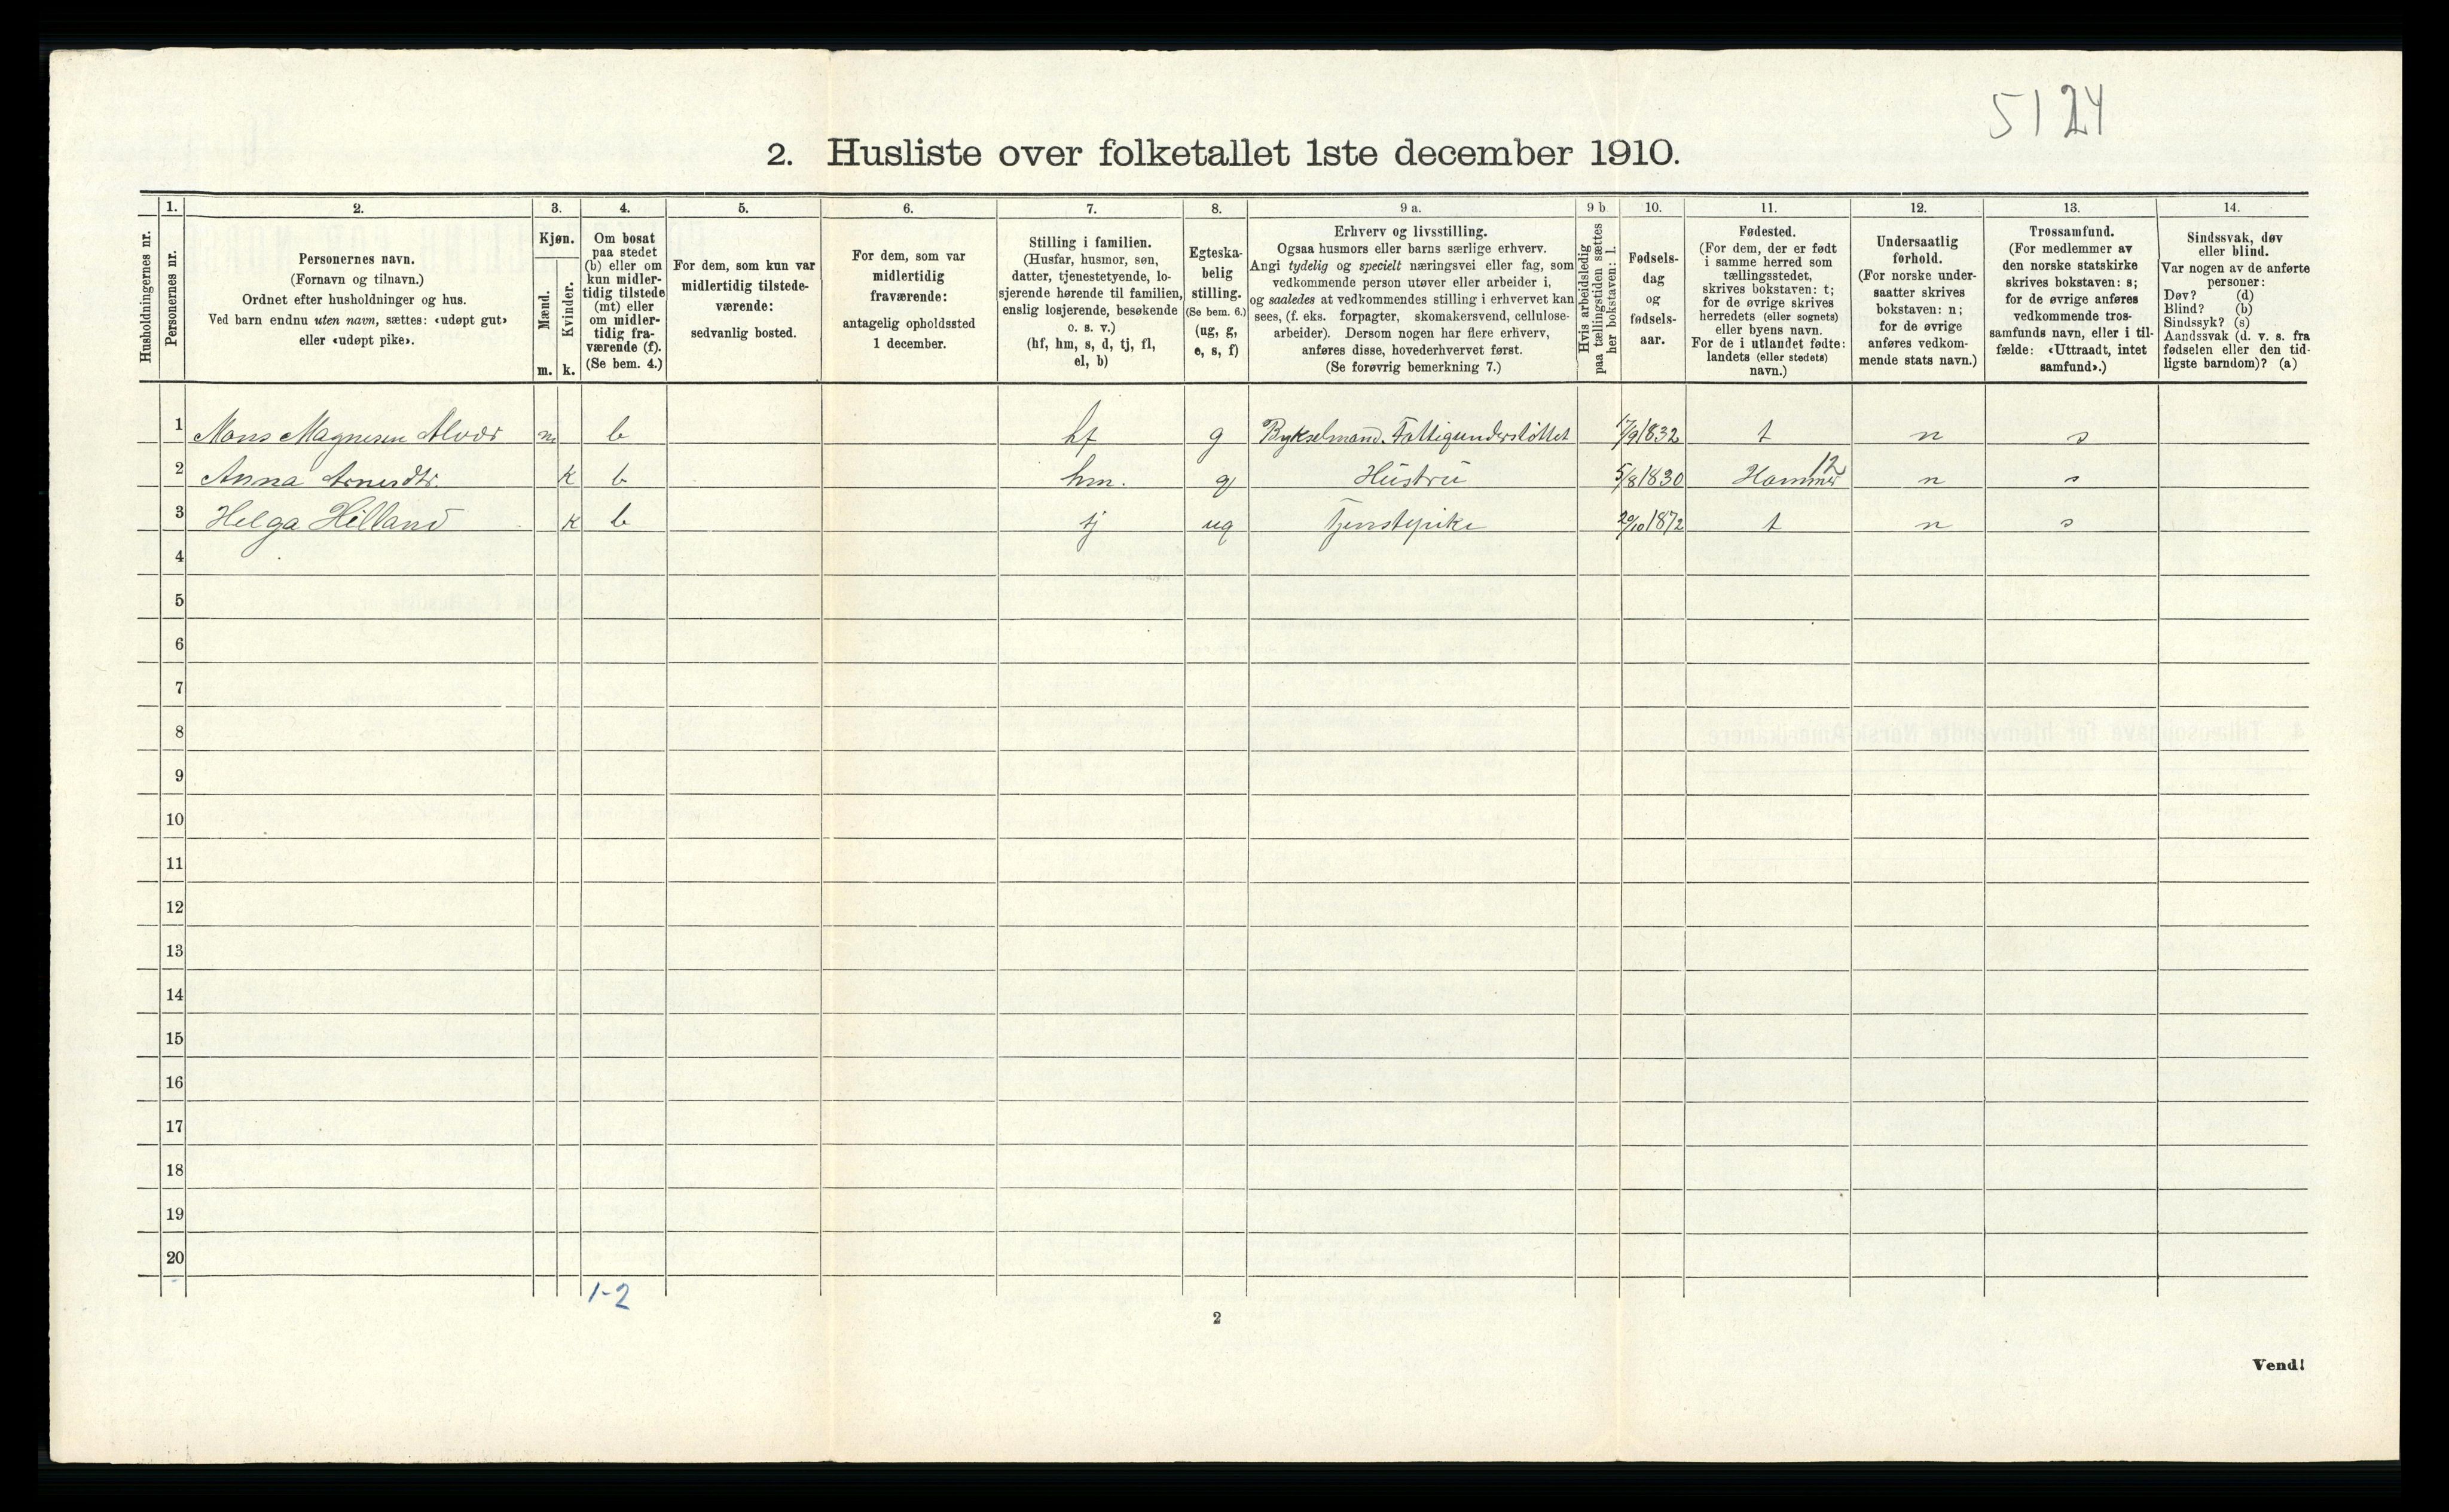 5124
2. Husliste over folketallet 1ste december 1910.
Husholdningernes nr.
1.
Personernes nr.
2.
Personernes navn.
(Fornavn og tilnavn.)
Ordnet efter husholdninger og hus.
Ved barn endnu uten navn, sættes: «udøpt gut»
eller «udøpt pike».
3.
Kjøn.
Mænd.
Kvinder.
m. k.
4.
Om bosat
paa stedet
(b) eller om
kun midler-
tidig tilstede
(mt) eller
om midler-
tidig fra-
værende (f).
(Se bem. 4.)
5.
For dem, som kun var
midlertidig tilstede-
værende:
sedvanlig bosted.
6.
For dem, som var
midlertidig
fraværende:
antagelig opholdssted
1 december.
7.
Stilling i familien.
(Husfar, husmor, søn,
datter, tjenestetyende, lo-
sjerende hørende til familien,
enslig losjerende, besøkende
o. s. v.)
(hf, hm, s, d, tj, fl,
el, b)
8.
Egteska-
belig
stilling.
(Se bem. 6.)
(ug, g,
e, s, f)
9 a.
Erhverv og livsstilling.
Ogsaa husmors eller barns særlige erhverv.
Angi tydelig og specielt næringsvei eller fag, som
vedkommende person utøver eller arbeider i,
og saaledes at vedkommendes stilling i erhvervet kan
sees, (f. eks. forpagter, skomakersvend, cellulose-
arbeider). Dersom nogen har flere erhverv,
anføres disse, hovederhvervet først.
(Se forøvrig bemerkning 7.)
9 b
Hvis arbeidsledig
paa tællingstiden sættes
her bokstaven: l.
10.
Fødsels-
dag
og
fødsels-
aar.
11.
Fødested.
(For dem, der er født
i samme herred som
tællingsstedet,
skrives bokstaven: t;
for de øvrige skrives
herredets (eller sognets)
eller byens navn.
For de i utlandet fødte:
landets (eller stedets)
navn.)
12.
Undersaatlig
forhold.
(For norske under-
saatter skrives
bokstaven: n;
for de øvrige
anføres vedkom-
mende stats navn.)
13.
Trossamfund.
(For medlemmer av
den norske statskirke
skrives bokstaven: s;
for de øvrige anføres
vedkommende tros-
samfunds navn, eller i til-
fælde: «Uttraadt, intet
samfund».)
14.
Sindssvak, døv
eller blind.
Var nogen av de anførte
personer:
Døv? (d)
Blind? (b)
Sindssyk? (s)
Aandssvak (d. v. s. fra
fødselen eller den tid-
ligste barndom)? (a)
1 Mons Magnesen m b hf g Bykselmand. Fattigunderstöttet 17/9 1832 t n s
2 Anna k b hm. g Hustru 5/8 1830 Hammer 12 n s
3 Helga Hilland k b tj ug Tjenstepike 20/10 1872 t n s
4
5
6
7
8
9
10
11
12
13
14
15
16
17
18
19
20
1-2
2
Vend!